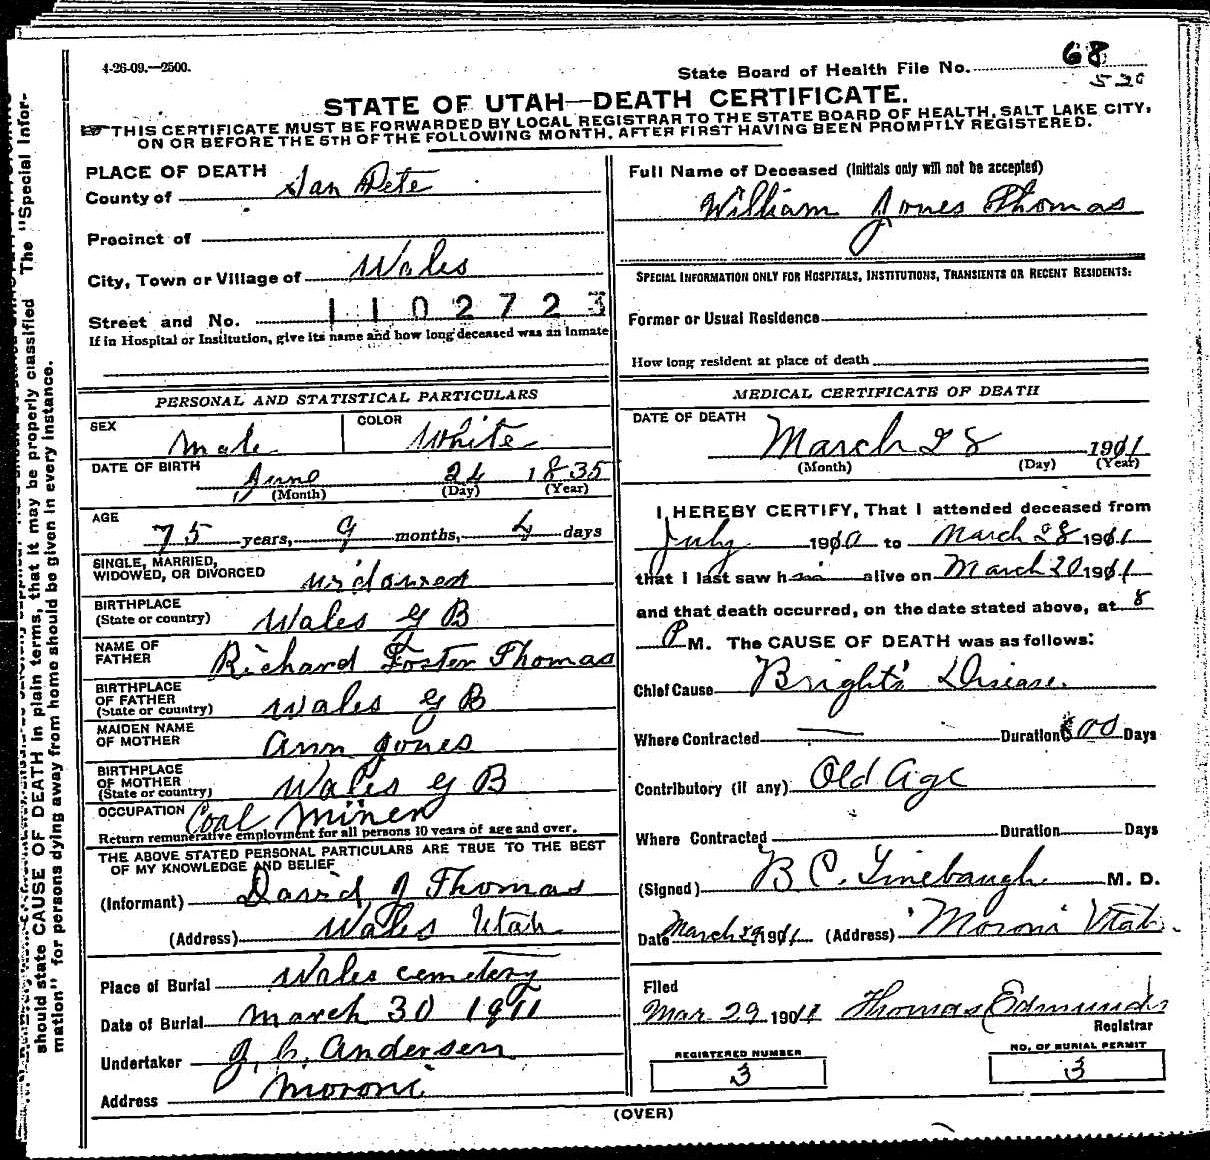 4-26-09.—2500.
State Board of Health File No. 68
530
STATE OF UTAH—DEATH CERTIFICATE.
THIS CERTIFICATE MUST BE FORWARDED BY LOCAL REGISTRAR TO THE STATE BOARD OF HEALTH, SALT LAKE CITY,
ON OR BEFORE THE 5TH OF THE FOLLOWING MONTH, AFTER FIRST HAVING BEEN PROMPTLY REGISTERED.
PLACE OF DEATH
County of San Pete
Precinct of
City, Town or Village of Wales
1102723
Street and No.
If in Hospital or Institution, give its name and how long deceased was an inmate
PERSONAL AND STATISTICAL PARTICULARS
SEX Male COLOR White
DATE OF BIRTH June 24 1835
(Month) (Day) (Year)
AGE 75 years, 9 months, 4 days
SINGLE, MARRIED,
WIDOWED, OR DIVORCED widowed
BIRTHPLACE
(State or country) Wales G B
NAME OF
FATHER Richard Foster Thomas
BIRTHPLACE
OF FATHER
(State or country) Wales G B
MAIDEN NAME
OF MOTHER Ann Jones
BIRTHPLACE
OF MOTHER
(State or country) Wales G B
OCCUPATION Coal Miner
Return remunerative employment for all persons 10 years of age and over.
THE ABOVE STATED PERSONAL PARTICULARS ARE TRUE TO THE BEST
OF MY KNOWLEDGE AND BELIEF
(Informant) David J Thomas
(Address) Wales Utah
Place of Burial Wales cemetery
Date of Burial march 30 1911
Undertaker J. C. Andersen
Address Moroni
Full Name of Deceased (Initials only will not be accepted)
William Jones Thomas
SPECIAL INFORMATION ONLY FOR HOSPITALS, INSTITUTIONS, TRANSIENTS OR RECENT RESIDENTS:
Former or Usual Residence
How long resident at place of death
MEDICAL CERTIFICATE OF DEATH
DATE OF DEATH March 28 1911
(Month) (Day) (Year)
I HEREBY CERTIFY, That I attended deceased from
July 1910 to March 28 1911
that I last saw him alive on March 20 1911
and that death occurred, on the date stated above, at 8
P M. The CAUSE OF DEATH was as follows:
Chief Cause Bright's Disease.
Where Contracted — Duration 600 Days
Contributory (if any) Old Age
Where Contracted Duration Days
(Signed) B C. Linebaugh M. D.
Date March 29 1911 (Address) Moroni Utah.
Filed
Mar. 29 1911 Thomas Edmunds
Registrar
REGISTERED NUMBER
3
NO. OF BURIAL PERMIT
3
(OVER)
should state CAUSE OF DEATH in plain terms, that it may be properly classified The "Special Infor-
mation" for persons dying away from home should be given in every instance.